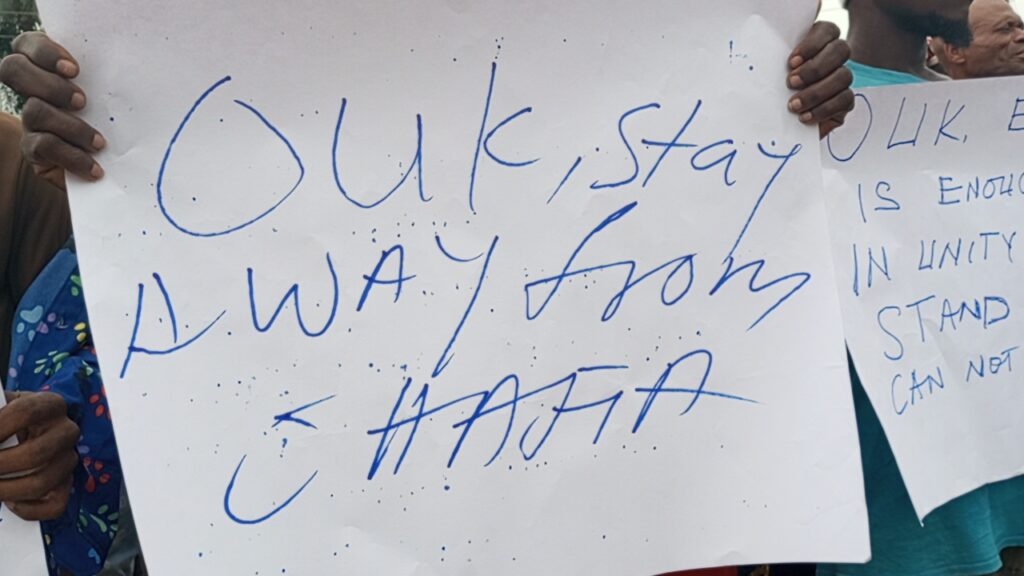 OUK, stay
AWAY from
OHAFIA
OUK,
IS
IN UNITY
STAND
CAN NOT